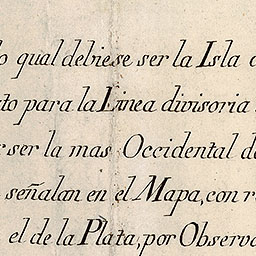 lo qual debiese ser la Isla
to para la Linea divisoria
ser la mas Occidental de
señalan en el Mapa, con
el de la Plata, por Observa